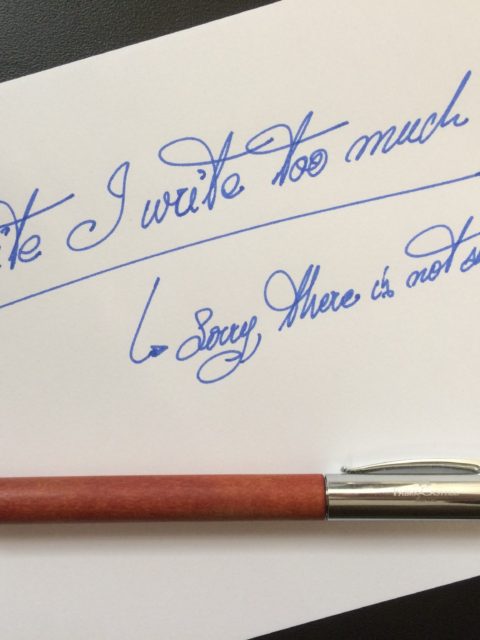 ite I write too much
↳ Sorry, there is not s